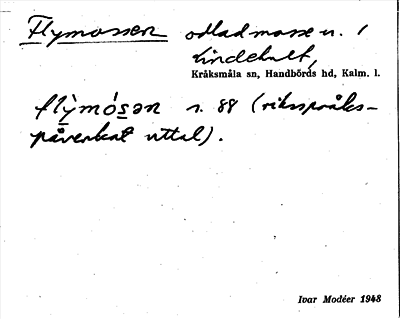 Flymossen odlad mosse u. /
Lindehult,
Kråksmåla sn, Handbörds hd, Kalm. l.
flỳmósən s. 88 (riksspråks-
påverkat uttal).
Ivar Modéer 1943